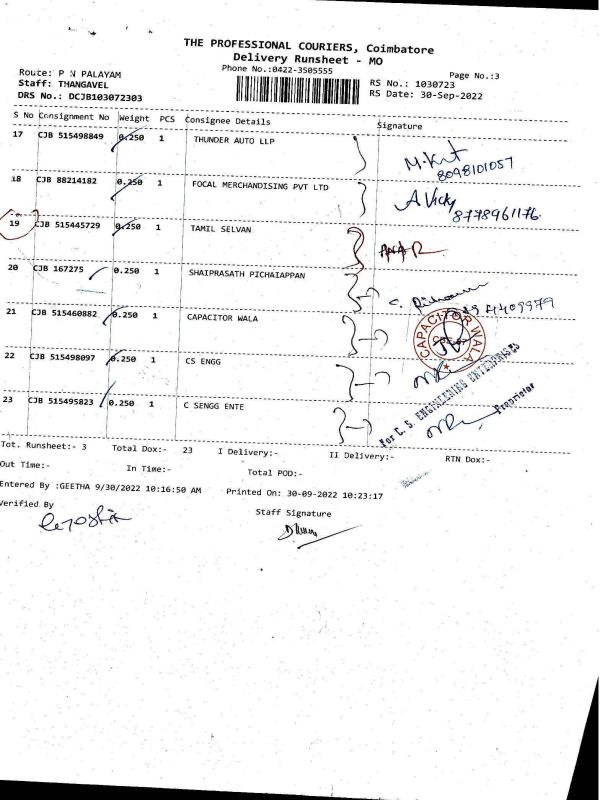 THE PROFESSIONAL COURIERS, Coimbatore
Delivery Runsheet - MO
Phone No.:0422-3505555
Page No.:3
Route: P N PALAYAM
Staff: THANGAVEL
DRS No.: DCJB103072303
RS No.: 1030723
RS Date: 30-Sep-2022
S No Consignment No Weight PCS Consignee Details Signature
17 CJB 515498849 0.250 1 THUNDER AUTO LLP
8098101057
18 CJB 88214182 0.250 1 FOCAL MERCHANDISING PVT LTD A.Vicky
8778961176
19 CJB 515445729 0.250 1 TAMIL SELVAN
20 CJB 167275 0.250 1 SHAIPRASATH PICHAIAPPAN
21 CJB 515460882 0.250 1 CAPACITOR WALA
CAPACITOR WALA
22 CJB 515498097 0.250 1 CS ENGG
For C. S. ENGINEERING ENTERPRISES
23 CJB 515495823 0.250 1 C SENGG ENTE
Proprietor
Tot. Runsheet:- 3 Total Dox:- 23 I Delivery:- II Delivery:- RTN Dox:-
Out Time:- In Time:- Total POD:-
Entered By :GEETHA 9/30/2022 10:16:50 AM Printed On: 30-09-2022 10:23:17
Verified By
Staff Signature